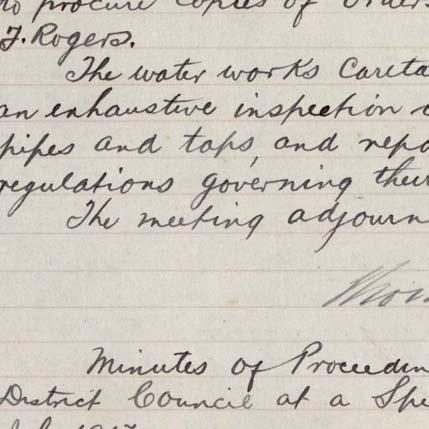 to procure copies of orders
J. Rogers.
The water works Careta
an exhaustive inspection o
pipes and taps, and repo
regulations governing their
The meeting adjourn
Minutes of Proceedin
District Council at a Spe
July 1917